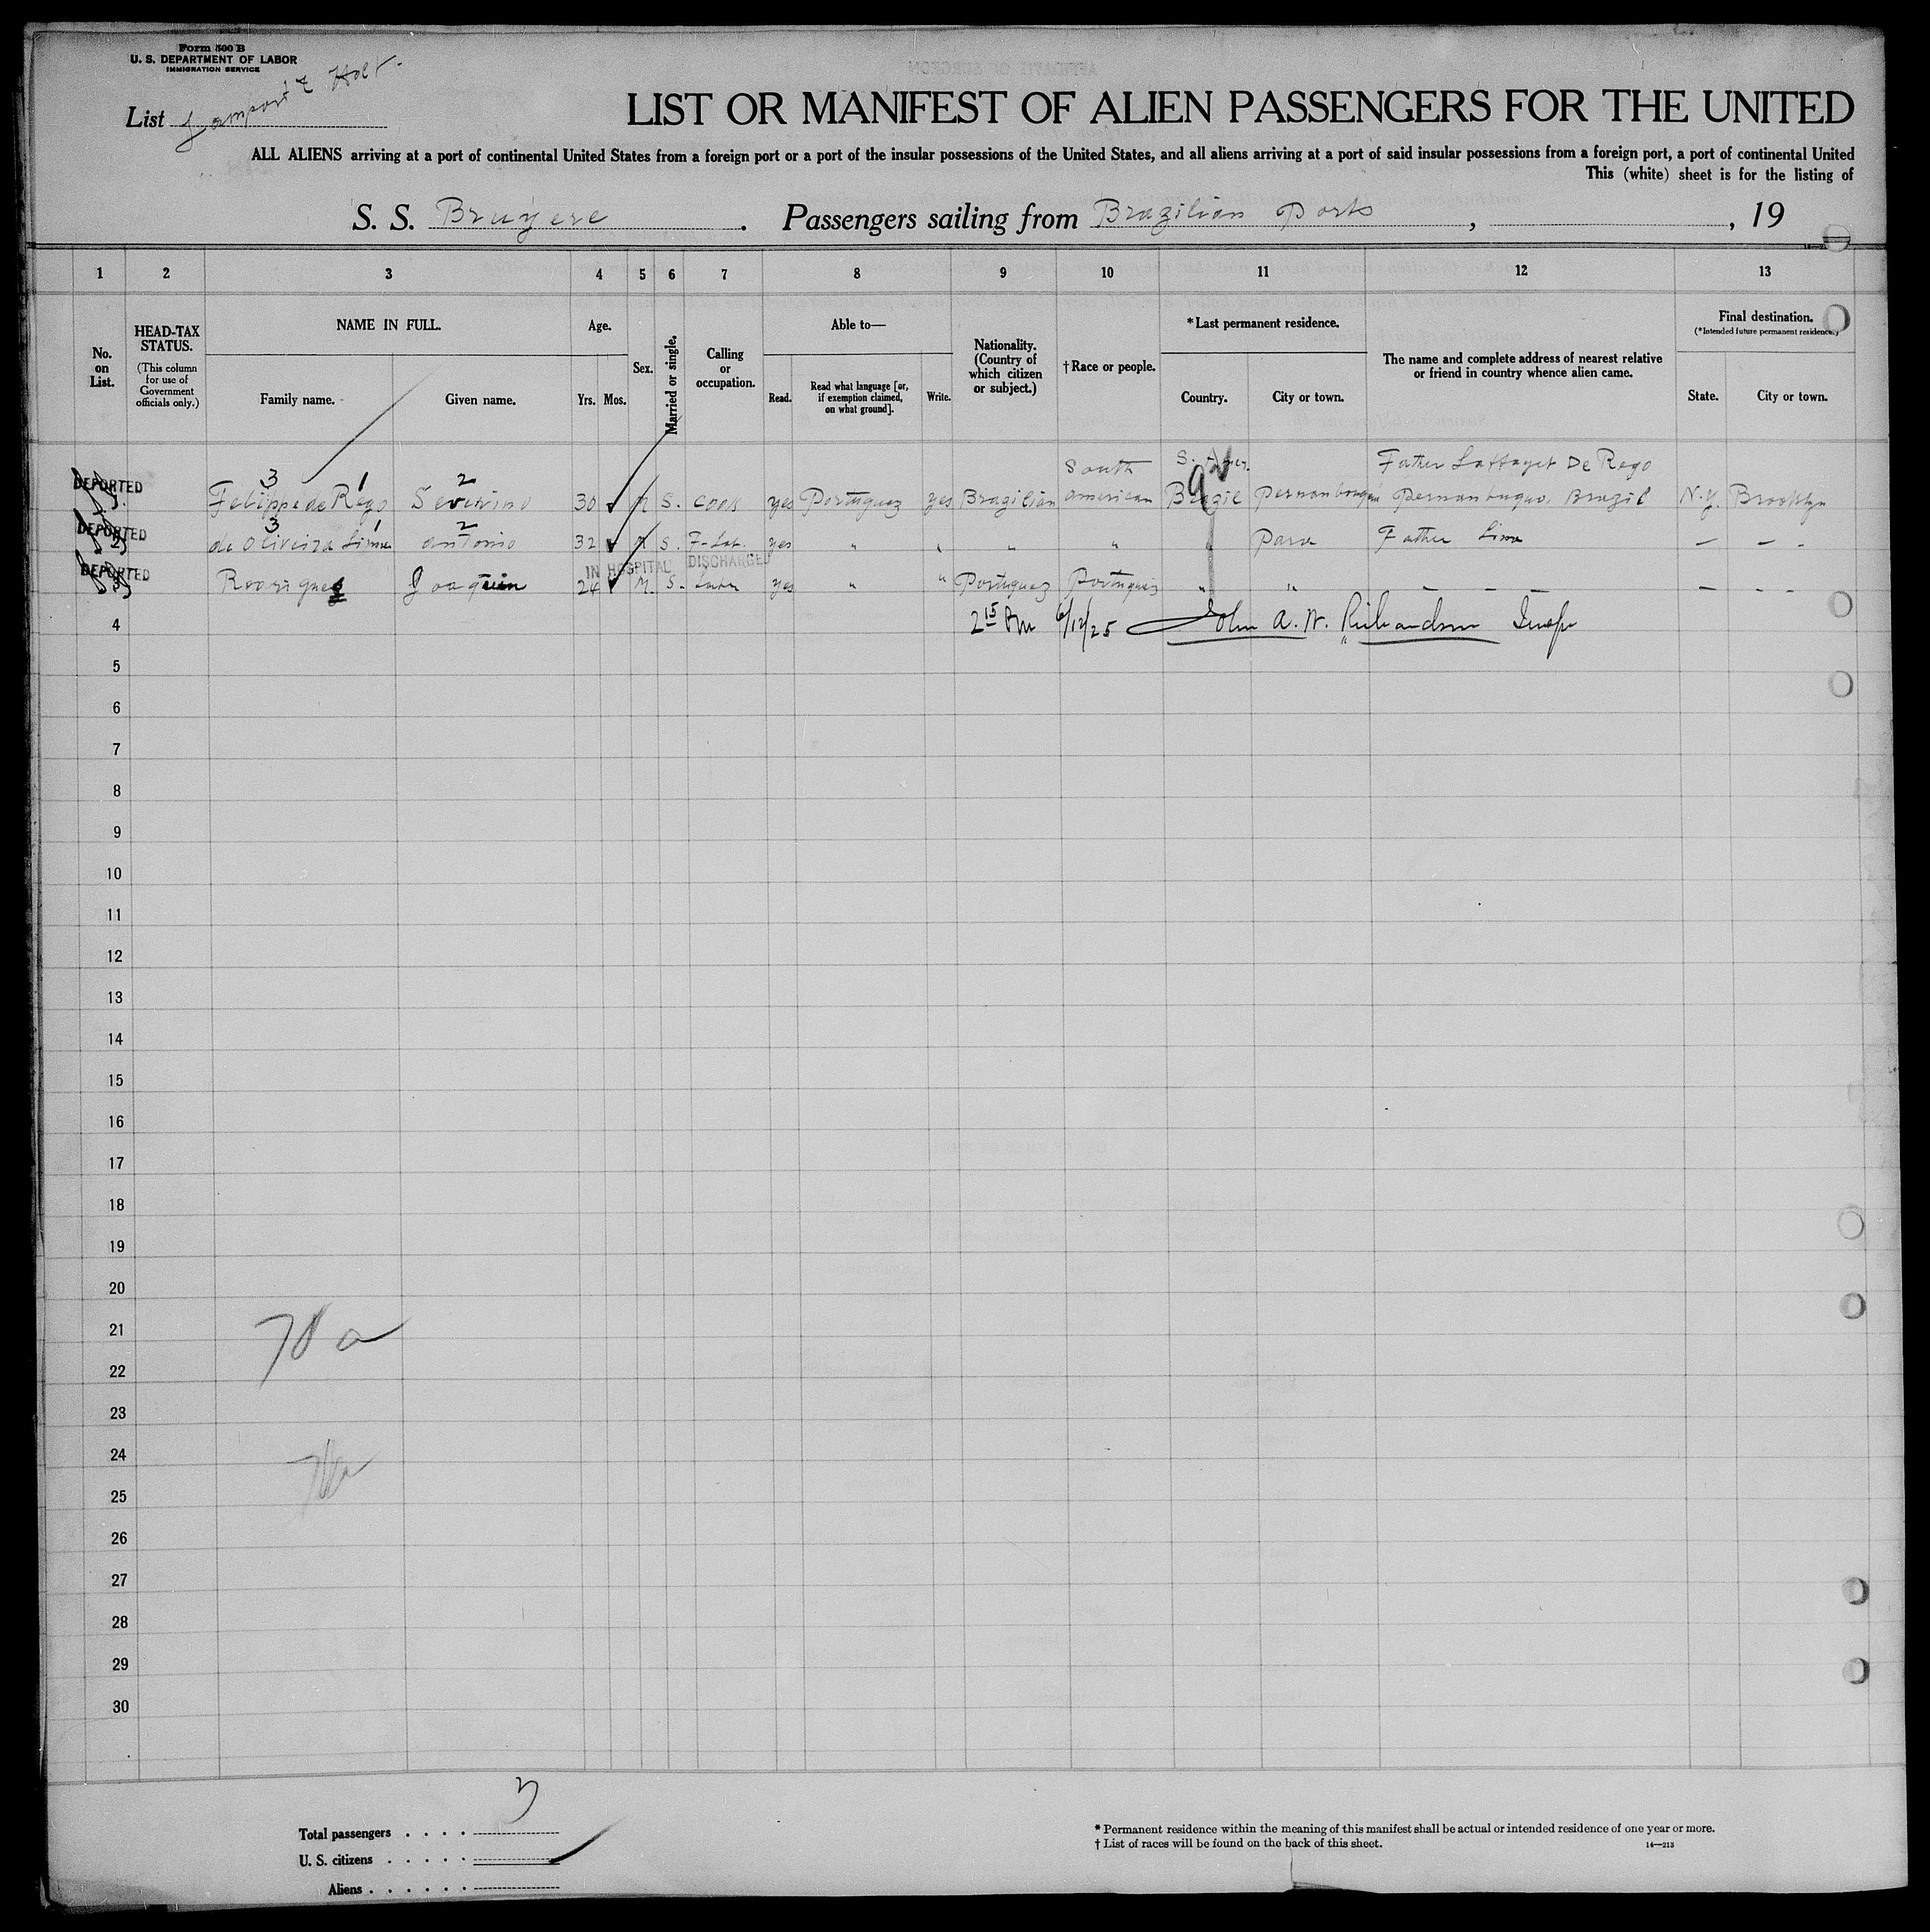 Form 500 B
U. S. DEPARTMENT OF LABOR
IMMIGRATION SERVICE
List Lamport & Holt.
LIST OR MANIFEST OF ALIEN PASSENGERS FOR THE UNITED
ALL ALIENS arriving at a port of continental United States from a foreign port or a port of the insular possessions of the United States, and all aliens arriving at a port of said insular possessions from a foreign port, a port of continental United
This (white) sheet is for the listing of
S. S. Bruyere. Passengers sailing from Brazilian Ports, , 19
1 2 3 4 5 6 7 8 9 10 11 12 13
No. on List.
HEAD-TAX STATUS.
(This column for use of Government officials only.)
NAME IN FULL.
Family name. Given name.
Age.
Yrs. Mos.
Sex.
Married or single.
Calling or occupation.
Able to—
Read. Read what language [or, if exemption claimed, on what ground]. Write.
Nationality. (Country of which citizen or subject.)
† Race or people.
* Last permanent residence.
Country. City or town.
The name and complete address of nearest relative or friend in country whence alien came.
Final destination.
(*Intended future permanent residence.)
State. City or town.
South S. Amer. Father Laffayet De Rego
3 1 2
DEPORTED Felippe de Rego Severino 30 M S. Cook yes Portuguez yes Brazilian american Brazil Pernanbouqu Pernanbuquo, Brazil N.Y. Brooklyn
3 1 2
DEPORTED 2 de Oliveira Lima antonio 32 M S. yes " " " " " Para Father Lima — — -
IN HOSPITAL DISCHARGED
DEPORTED 3 Rodrigues Joaquin 24 M. S. yes " " Portuguez Portugues " " — - — — - -
4 2 15 Pm 6/12/25 John A. W. Richardson Insp
5
6
7
8
9
10
11
12
13
14
15
16
17
18
19
20
21
22
23
24
25
26
27
28
29
30
3
Total passengers . . . .
U. S. citizens . . . . .
Aliens . . . . . .
* Permanent residence within the meaning of this manifest shall be actual or intended residence of one year or more.
† List of races will be found on the back of this sheet.
14—213